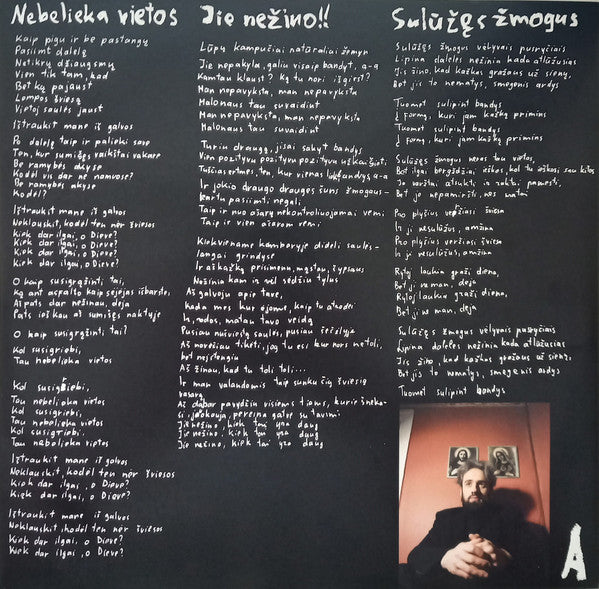 Nebelieka vietos
Kaip pigu ir be pastangų
Pasiimt dalelę
Netikrų džiaugsmų
Vien tik tam, kad
Bet ką pajaust
Lempos šviesą
Vietoj saulės jaust
Ištraukit mane iš galvos
Po dalelę taip ir palieki save
Ten, kur sumišęs vaikštai vakare
Be ramybės akyse
Kodėl vis dar ne namuose?
Be ramybės akyse
Kodėl?
Ištraukit mane iš galvos
Neklauskit, kodėl ten nėr šviesos
Kiek dar ilgai, o Dieve?
Kiek dar ilgai, o Dieve?
Kiek dar ilgai, o Dieve?
Kiek dar ilgai, o Dieve?
O kaip susigrąžinti tai,
Ką ant asfalto kaip sėjėjas išbarstei,
Aš pats dar nežinau, deja
Pats ieškau aš sumišęs naktyje
O kaip susigrąžinti tai?
Kol susigriebi,
Tau nebelieka vietos
Kol susigriebi,
Tau nebelieka vietos
Kol susigriebi,
Tau nebelieka vietos
Kol susigriebi,
Tau nebelieka vietos
Ištraukit mane iš galvos
Neklauskit, kodėl ten nėr šviesos
Kiek dar ilgai, o Dieve?
Kiek dar ilgai, o Dieve?
Ištraukit mane iš galvos
Neklauskit, kodėl ten nėr šviesos
Kiek dar ilgai, o Dieve?
Kiek dar ilgai, o Dieve?
Jie nežino!!
Lūpų kampučiai natūraliai žemyn
Jie nepakyla, galiu visaip bandyt, a-a
Kam tau klaust? Ką tu nori išgirst?
Man nepavyksta, man nepavyksta
Malonaus tau suvaidint
Man nepavyksta, man nepavyksta
Malonaus tau suvaidint
Turiu draugą, jisai sakyt bandys
Vien pozityvu pozityvu pozityvu užkaišioti
Tuščias ertmes, ten, kur vienas a-a
Ir jokio draugo draugės šuns žmogaus-
kartu pasiimti negali,
Taip ir nuo ašarų nekontroliuojamai vemi
Taip ir vien ašarom vemi
Kiekviename kambaryje dideli saulės-
langai grindyse
Ir aš kažką prisimenu, mąstau, šypsaus
Nežinia kam ir vėl sėdžiu tylus
Aš galvoju apie tave,
kada mes kur ėjome, kaip tu atrodei
Ir, rodos, matau tavo veidą
Pusiau nušviestą saulės, pusiau šešėlyje
Aš norėčiau tikėti, jog tu esi kur nors netoli,
bet nesi tengiu
Aš žinau, kad tu toli toli...
Ir man valandomis taip sunku čią šviesią
vasarą
Aš dabar pavydžiu visiems tiems, kurie šneka-
si, juokauja, pereina gatve su tavimi
Jie nežino, kiek tai yra daug
Jie nežino, kiek tai yra daug
Jie nežino, kiek tai yra daug
Sulūžęs žmogus
Sulūžęs žmogus vėlyvais pusryčiais
Lipina daleles nežinia kada atlūžusias
Jis žino, kad kažkas gražaus už sienų,
Bet jis to nematys, smegenis ardys
Tuomet sulipint bandys
Į formą, kuri jam kažką primins
Tuomet sulipint bandys
Į formą, kuri jam kažką primins
Sulūžęs žmogus neras tau vietos,
Bet ilgai bergždžiai ieškos, kol tu ieškosi sau kitos
Jo varžtai atsukti ir raktai pamesti,
Bet je nepamiršti, nes matai
Pro plyšius veržiasi šviesa
Ir ji nesulūžus, amžina
Pro plyšius veržiasi šviesa
Ir ji nesulūžus, amžina
Rytoj laukia graži diena,
Bet ji ne man, deja
Rytoj laukia graži diena,
Bet ji ne man, deja
Sulūžęs žmogus vėlyvais pusryčiais
Lipina daleles nežinia kada atlūžusias
Jis žino, kad kažkas gražaus už sienų,
Bet jis to nematys, smegenis ardys
Tuomet sulipint bandys
A